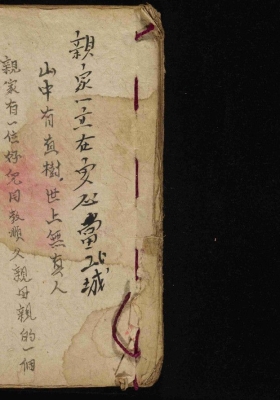 親家一主在实心當城
山中有直樹世上無真人
親家有一位好兒用孝順父親母親的一個